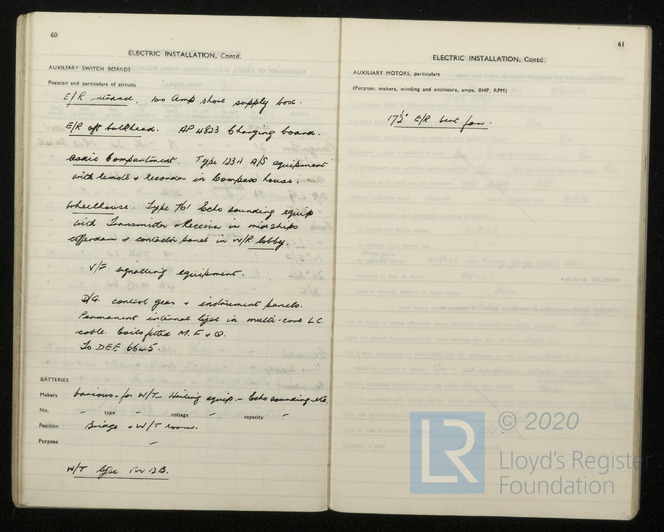 60
ELECTRIC INSTALLATION, Contd.
AUXILIARY SWITCH BOARDS
Position and particulars of circuits
E/R inboard. 100 Amp shore supply box.
E/R aft bulkhead. AP 4823 Charging board.
Asdic Compartment. Type 123A A/S equipment
with remote & recorder in Compass house.
Wheelhouse. Type 761 Echo sounding equip
with Transmitter & Receiver in midships
cofferdam & contactor panel in W/R lobby.
V/F signalling equipment.
D/G. control gear & instrument panels.
Permanent internal type in multi-core L.C.
cable. Coils fitted M. F & Q.
To DEE 6645.
BATTERIES
Makers Various - for W/T - Hailing equip. - Echo sounding etc.
No. " type " voltage " capacity "
Position Bridge & W/T room.
Purpose "
W/T type
61
ELECTRIC INSTALLATION, Contd.
AUXILIARY MOTORS, particulars
(Purpose, makers, winding and enclosure, amps, BHP, RPM)
17½" E/R vent fan.
LR
© 2020
Lloyd's Register
Foundation